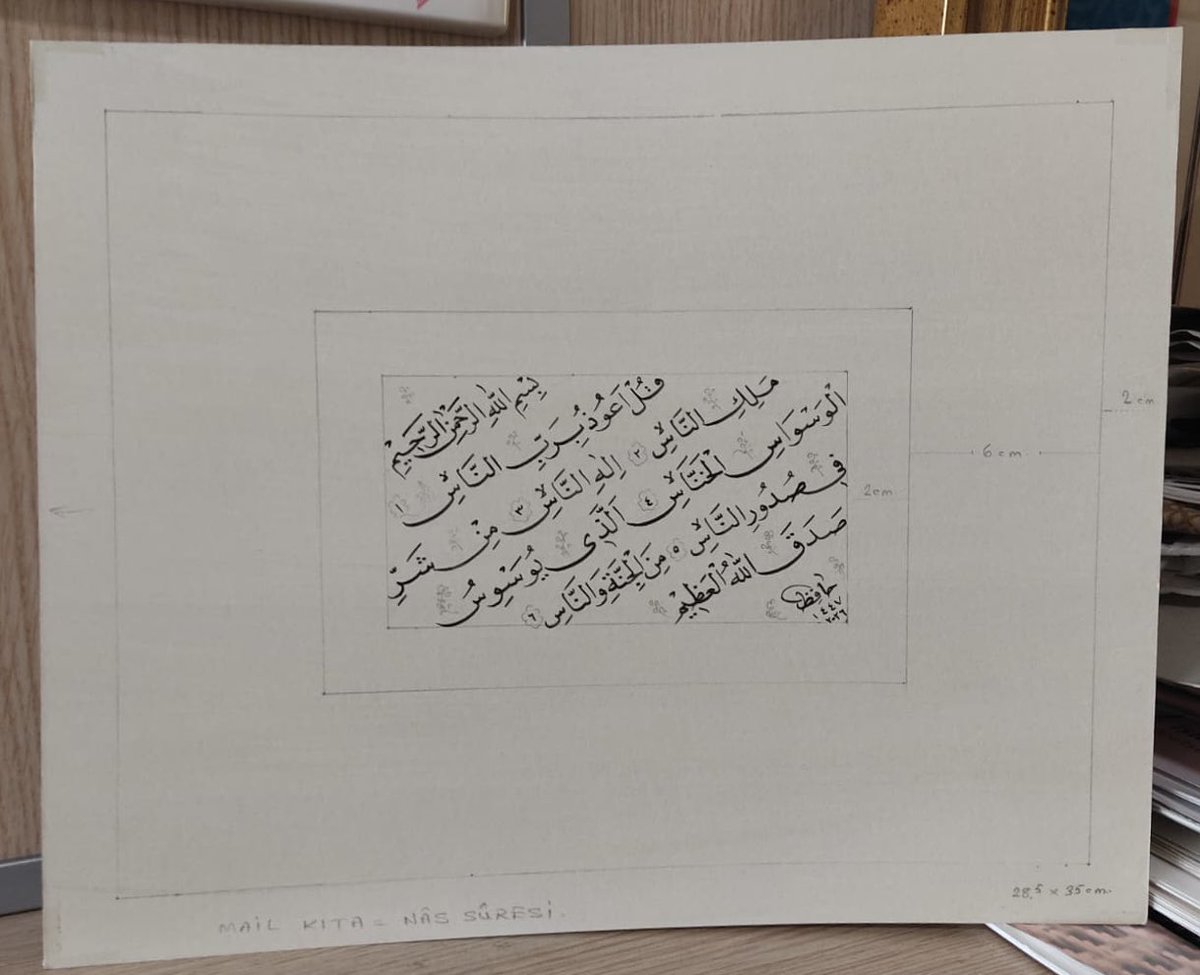 بِسْمِ اللهِ الرَّحْمٰنِ الرَّحِيمِ
قُلْ اَعُوذُ بِرَبِّ النَّاسِ ١
مَلِكِ النَّاسِ ٢ اِلٰهِ النَّاسِ ٣ مِنْ شَرِّ
الْوَسْوَاسِ الْخَنَّاسِ ٤ اَلَّذِى يُوَسْوِسُ
فِى صُدُورِ النَّاسِ ٥ مِنَ الْجِنَّةِ وَالنَّاسِ ٦
صَدَقَ اللهُ الْعَظِيمُ
حافظ
١٤٤٧
٢٠٢٦
2 cm
6 cm
2 cm
28,5 x 35 cm.
MAİL KITA = NÂS SÛRESİ.